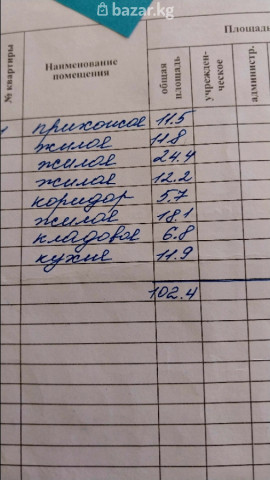 bazar.kg
Площадь
№ квартиры
Наименование помещения
общая площадь
учрежден-ческое
администр.
прихожая 11.5
жилое 11.8
жилое 24.4
жилое 12.2
коридор 5.7
жилое 18.1
кладовое 6.8
кухня 11.9
102.4